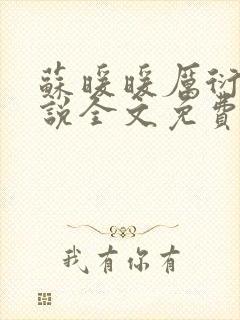 蘇暖暖厲衍
說全文免費
我有你有